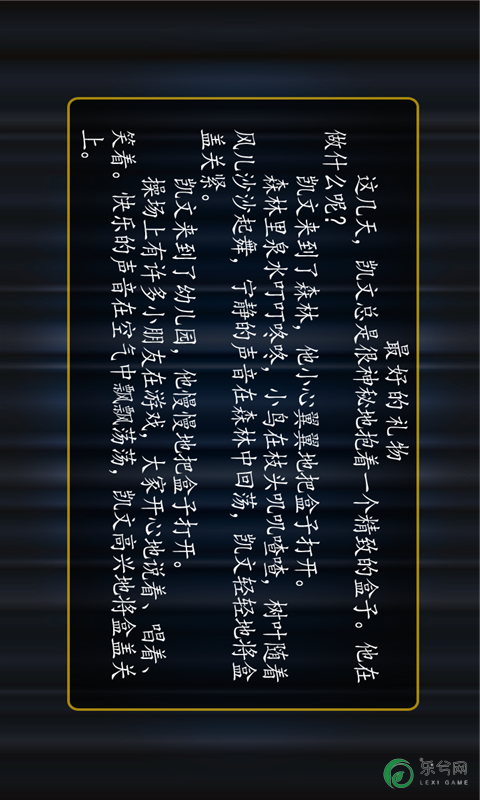 最好的礼物
这几天，凯文总是很神秘地抱着一个精致的盒子。他在
做什么呢？
凯文来到了森林，他小心翼翼地把盒子打开。
森林里泉水叮叮咚咚，小鸟在枝头叽叽喳喳，树叶随着
风儿沙沙起舞，宁静的声音在森林中回荡，凯文轻轻地将盒
盖关紧。
凯文来到了幼儿园，他慢慢地把盒子打开。
操场上有许多小朋友在游戏，大家开心地说着、唱着、
笑着。快乐的声音在空气中飘飘荡荡，凯文高兴地将盒盖关
上。
乐兮网
LEXI GAME